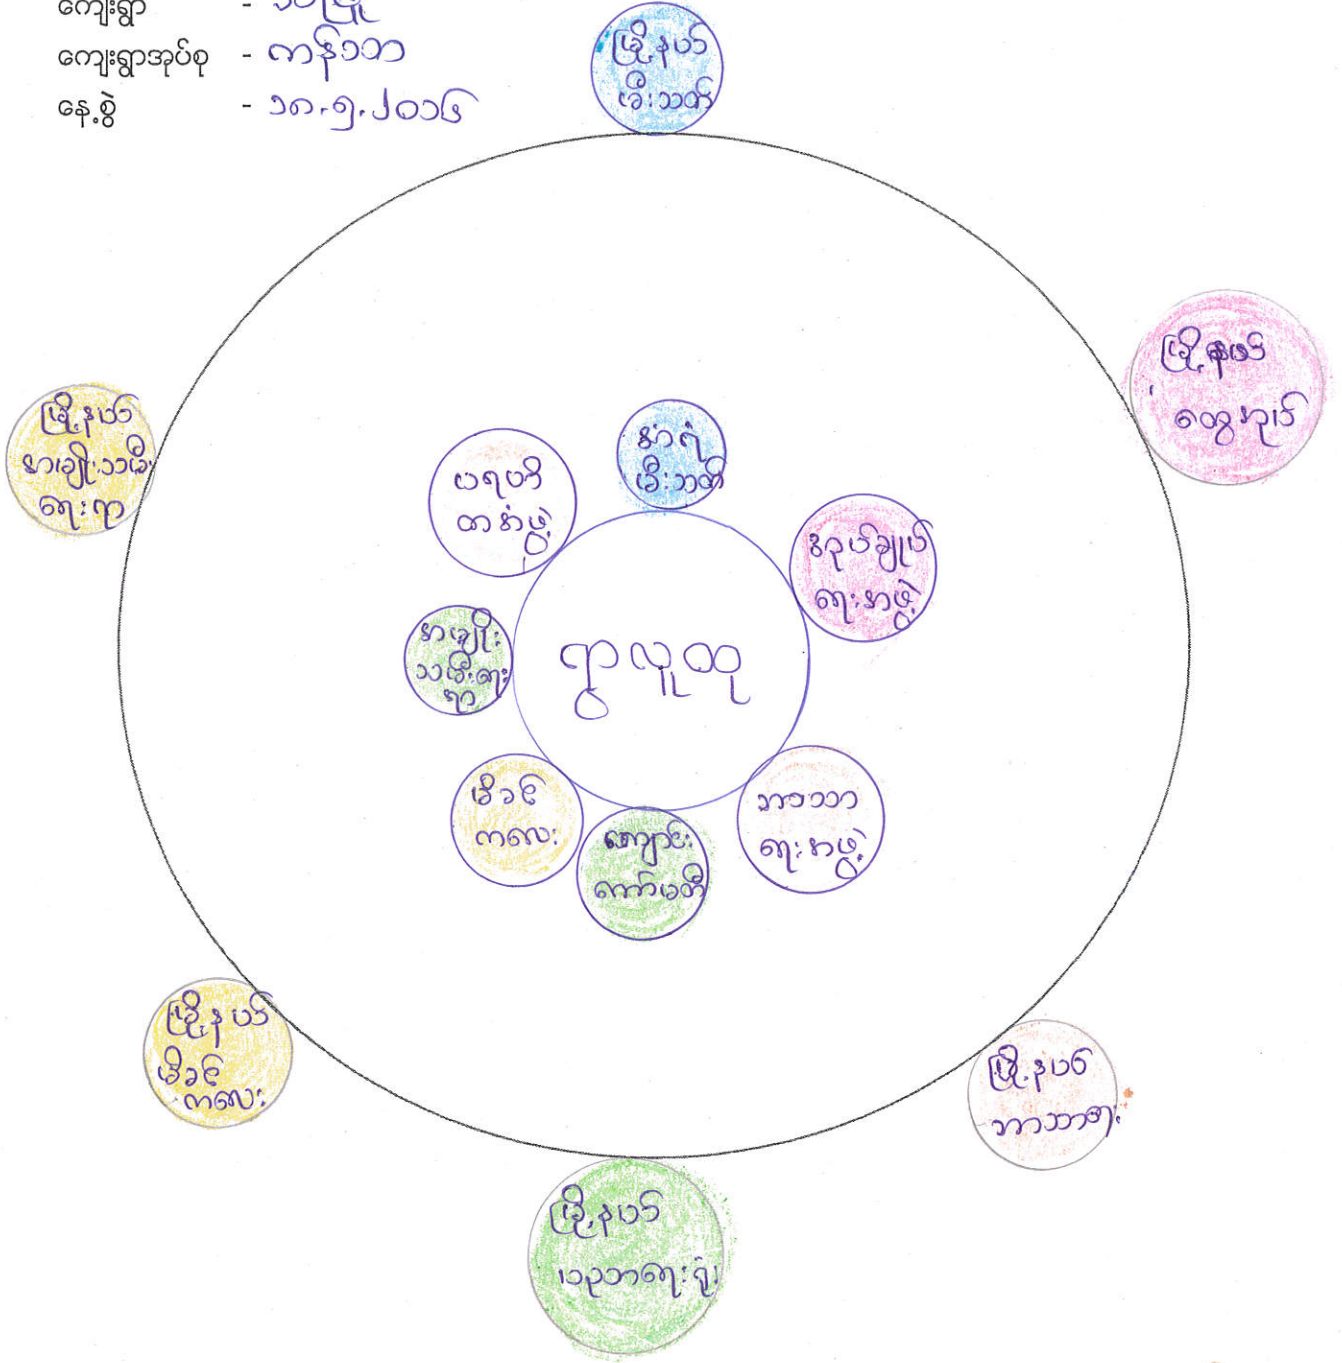 ကျေးရွာ -
ကျေးရွာအုပ်စု - ကန်သာ
နေ့စွဲ - ၁၈.၅.၂၀၁၆
မြို့နယ်
မီးသတ်
မြို့နယ်
ထွေအုပ်
မြို့နယ်
အမျိုးသမီး
ရေးရာ
အရံ
မီးသတ်
ပရဟိ
တအဖွဲ့
အုပ်ချုပ်
ရေးအဖွဲ့
အမျိုး
သမီးရေး
ရာ
ရွာလူထု
မိခင်
ကလေး
ကျောင်း
ကော်မတီ
ဘာသာ
ရေးအဖွဲ့
မြို့နယ်
မိခင်
ကလေး
မြို့နယ်
ဘာသာရေး
မြို့နယ်
ပညာရေးရုံး